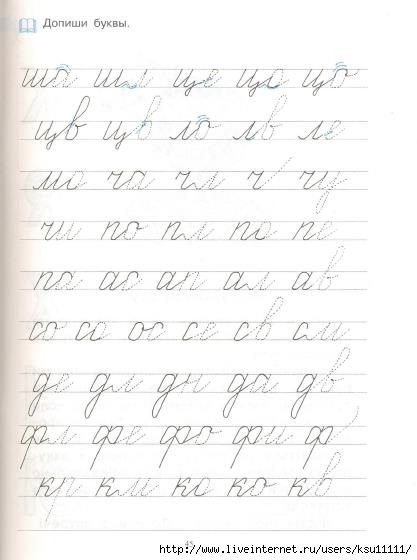 Допиши буквы.
ша шл це цо цо
цв цв ло лв ле
мо ча чл ч чу
чи по пл по пе
па ас ап ал ав
со со ос се св см
де дл дн да дв
фл фе фо фи ф
кр км ко ко кв
45
http://www.liveinternet.ru/users/ksu11111/